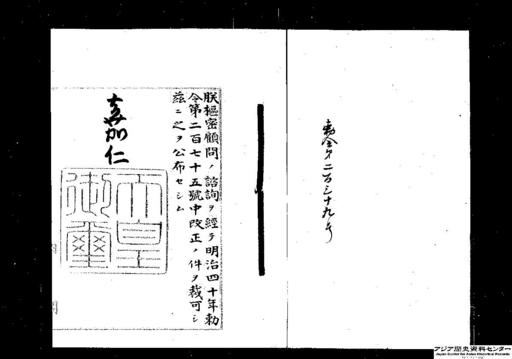 勅令第二百三十九号
朕樞密顧問ノ諮詢ヲ經テ明治四十年勅
令第二百七十五號中改正ノ件ヲ裁可シ
茲ニ之ヲ公布セシム
嘉仁
天皇
御璽
アジア歴史資料センター
Japan Center for Asian Historical Records